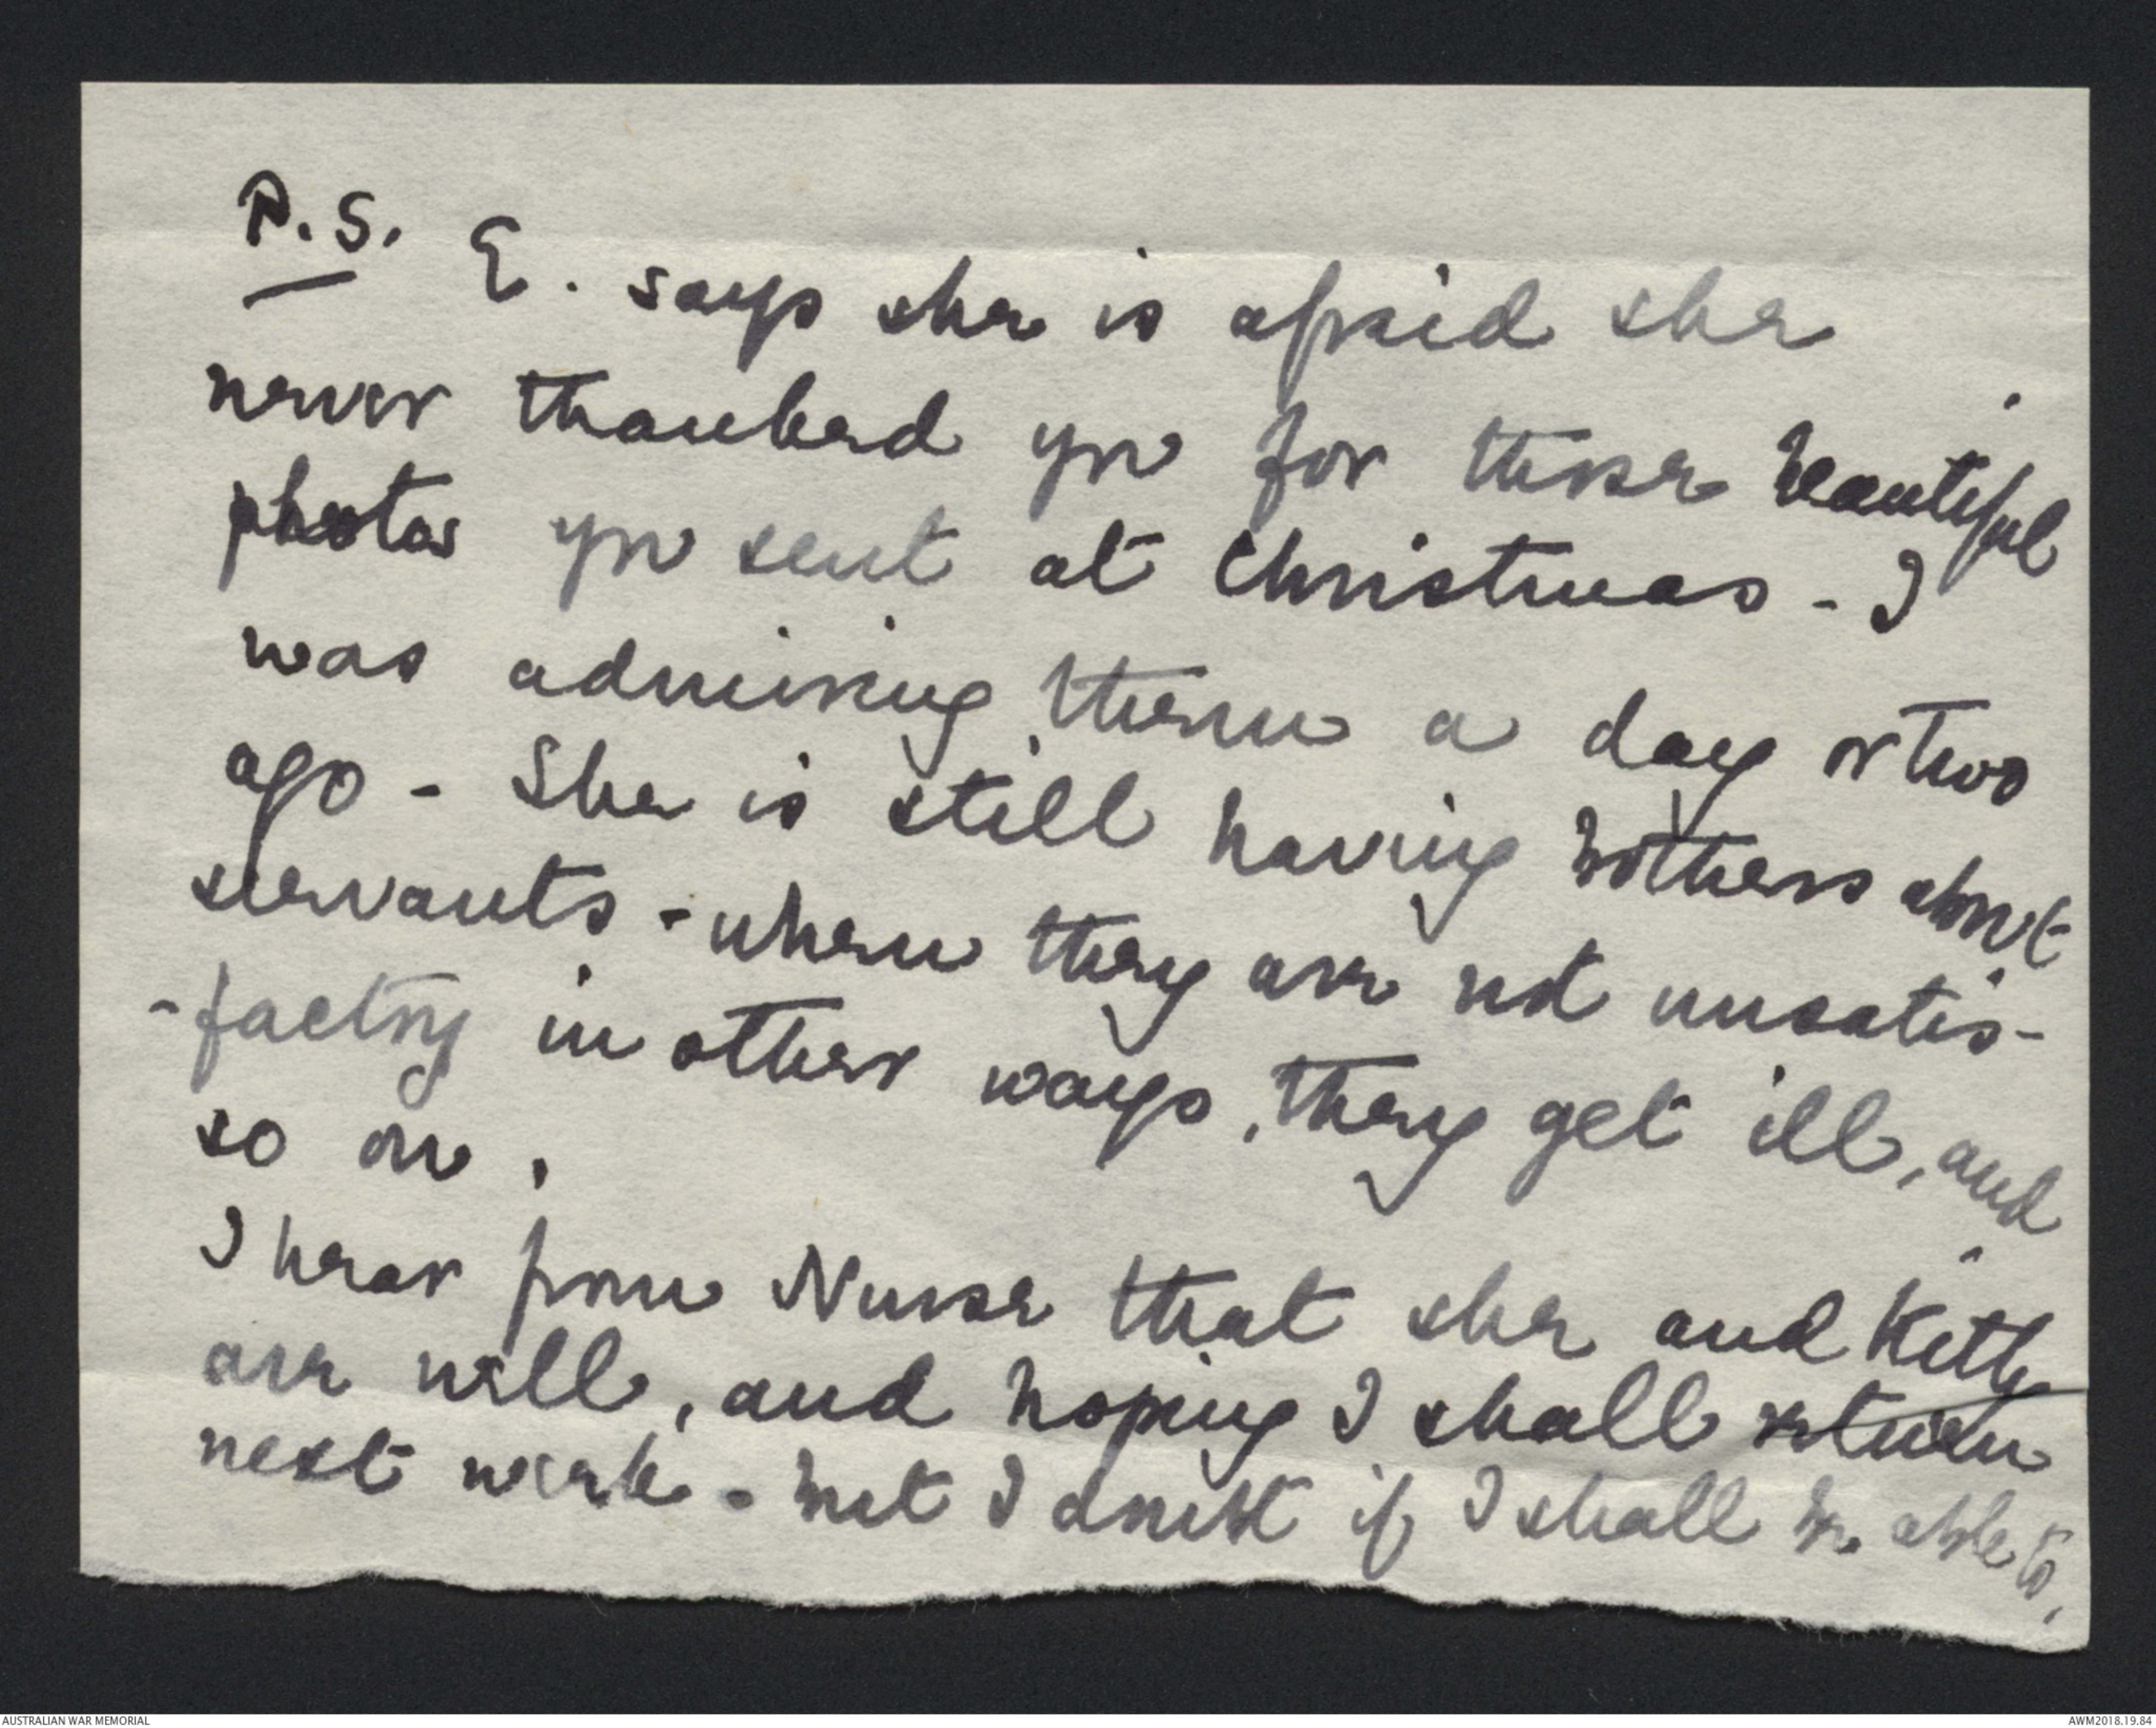 P.S. E. says she is afraid she
never thanked you for those beautiful
photos you sent at Christmas - I
was admiring them a day or two
ago - She is still having bothers about
servants - when they are not unsatis-
-factory in other ways, they get ill, and
so on.
I hear from Nurse that she and Kitty
are well, and hoping I shall return
next week - but I doubt if I shall be able to.
AUSTRALIAN WAR MEMORIAL
AWM2018.19.84